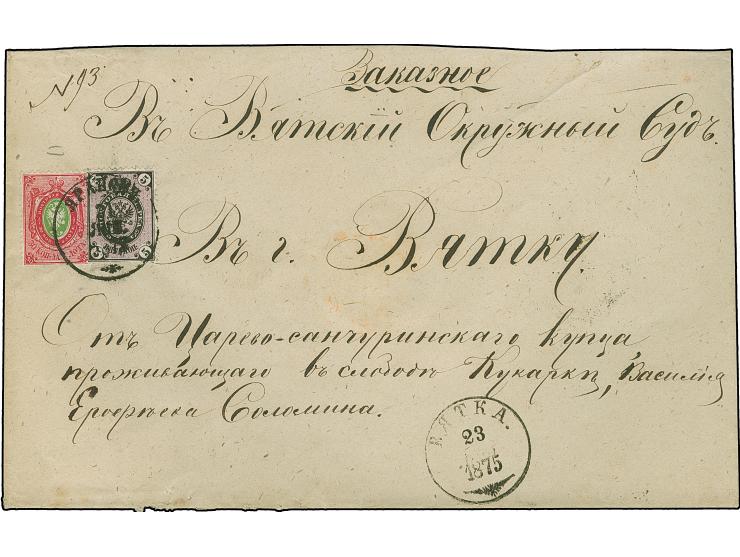 N 93
Заказное
Въ Вятскій Окружный Судъ.
Въ г. Вятку.
Отъ Царево-санчуринскаго купца
проживающаго въ слободѣ Кукаркѣ, Василія
Ерофѣева Соломина.
ЯРАНСКЪ
5
5
5
ВЯТКА.
23
1875